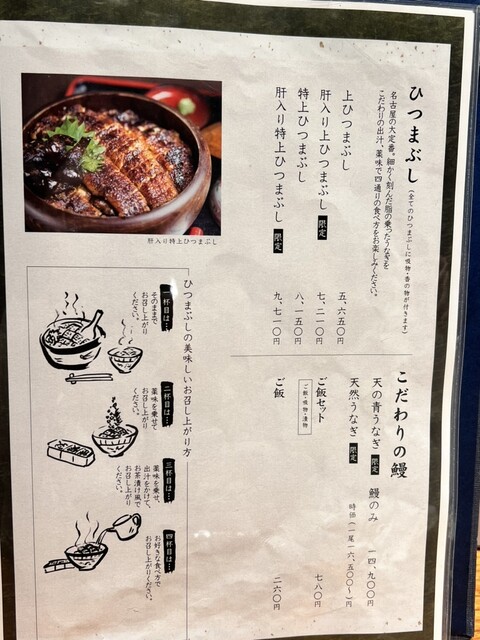 ひつまぶし(全てのひつまぶしに吸物・香の物が付きます)
名古屋の大定番。細かく刻んだ脂の乗ったうなぎを
こだわりの出汁、薬味で四通りの食べ方をお楽しみください。
上ひつまぶし 五、六五〇円
肝入り上ひつまぶし 限定 七、二一〇円
特上ひつまぶし 八、一五〇円
肝入り特上ひつまぶし 限定 九、七一〇円
こだわりの鰻
天の青うなぎ 限定 鰻のみ 一四、九〇〇円
天然うなぎ 限定 時価(一尾一六、五〇〇〜)円
ご飯セット ご飯・吸物・漬物 七八〇円
ご飯 二六〇円
肝入り特上ひつまぶし
ひつまぶしの美味しいお召し上がり方
一杯目は…
そのままで
お召し上がり
ください。
二杯目は…
薬味を乗せて
お召し上がり
ください。
三杯目は…
薬味を乗せ、
出汁をかけて、
お茶漬け風で
お召し上がり
ください。
四杯目は…
お好きな食べ方で
お召し上がりください。